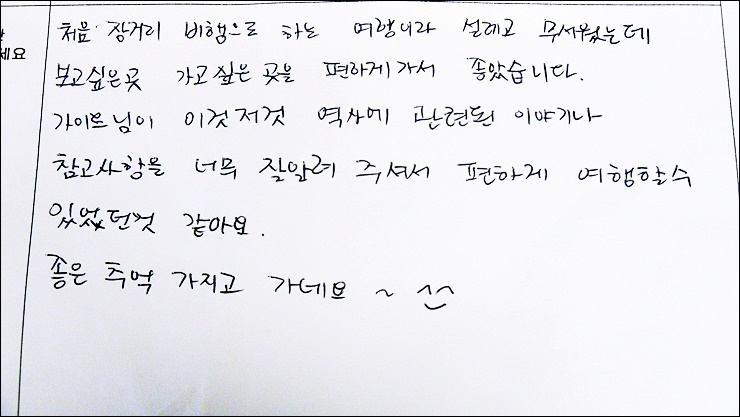 세요
처음 장거리 비행으로 하는 여행이라 설레고 무서웠는데
보고싶은곳 가고싶은 곳을 편하게가서 좋았습니다.
가이드님이 이것저것 역사에 관련된 이야기나
참고사항을 너무 잘알려 주셔서 편하게 여행할수
있었던것 같아요.
좋은 추억 가지고 가네요 ~ ^^